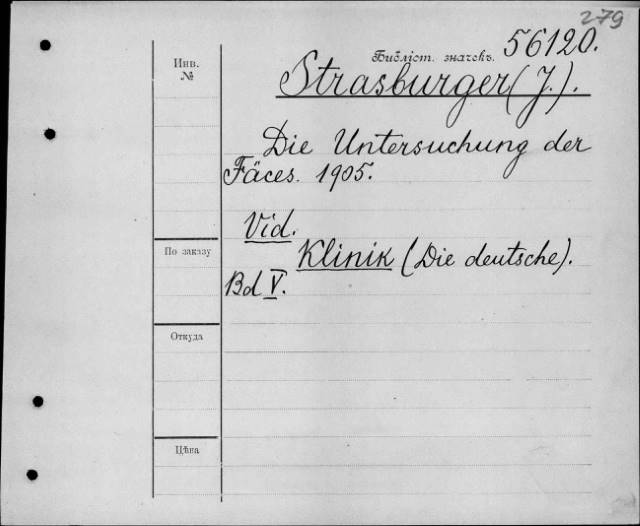 279
Библіот. значекъ. 56120.
Инв.
№
Strasburger (J.).
Die Untersuchung der
Fäces. 1905.
Vid.
Klinik (Die deutsche).
Bd V.
По заказу
Откуда
Цѣна